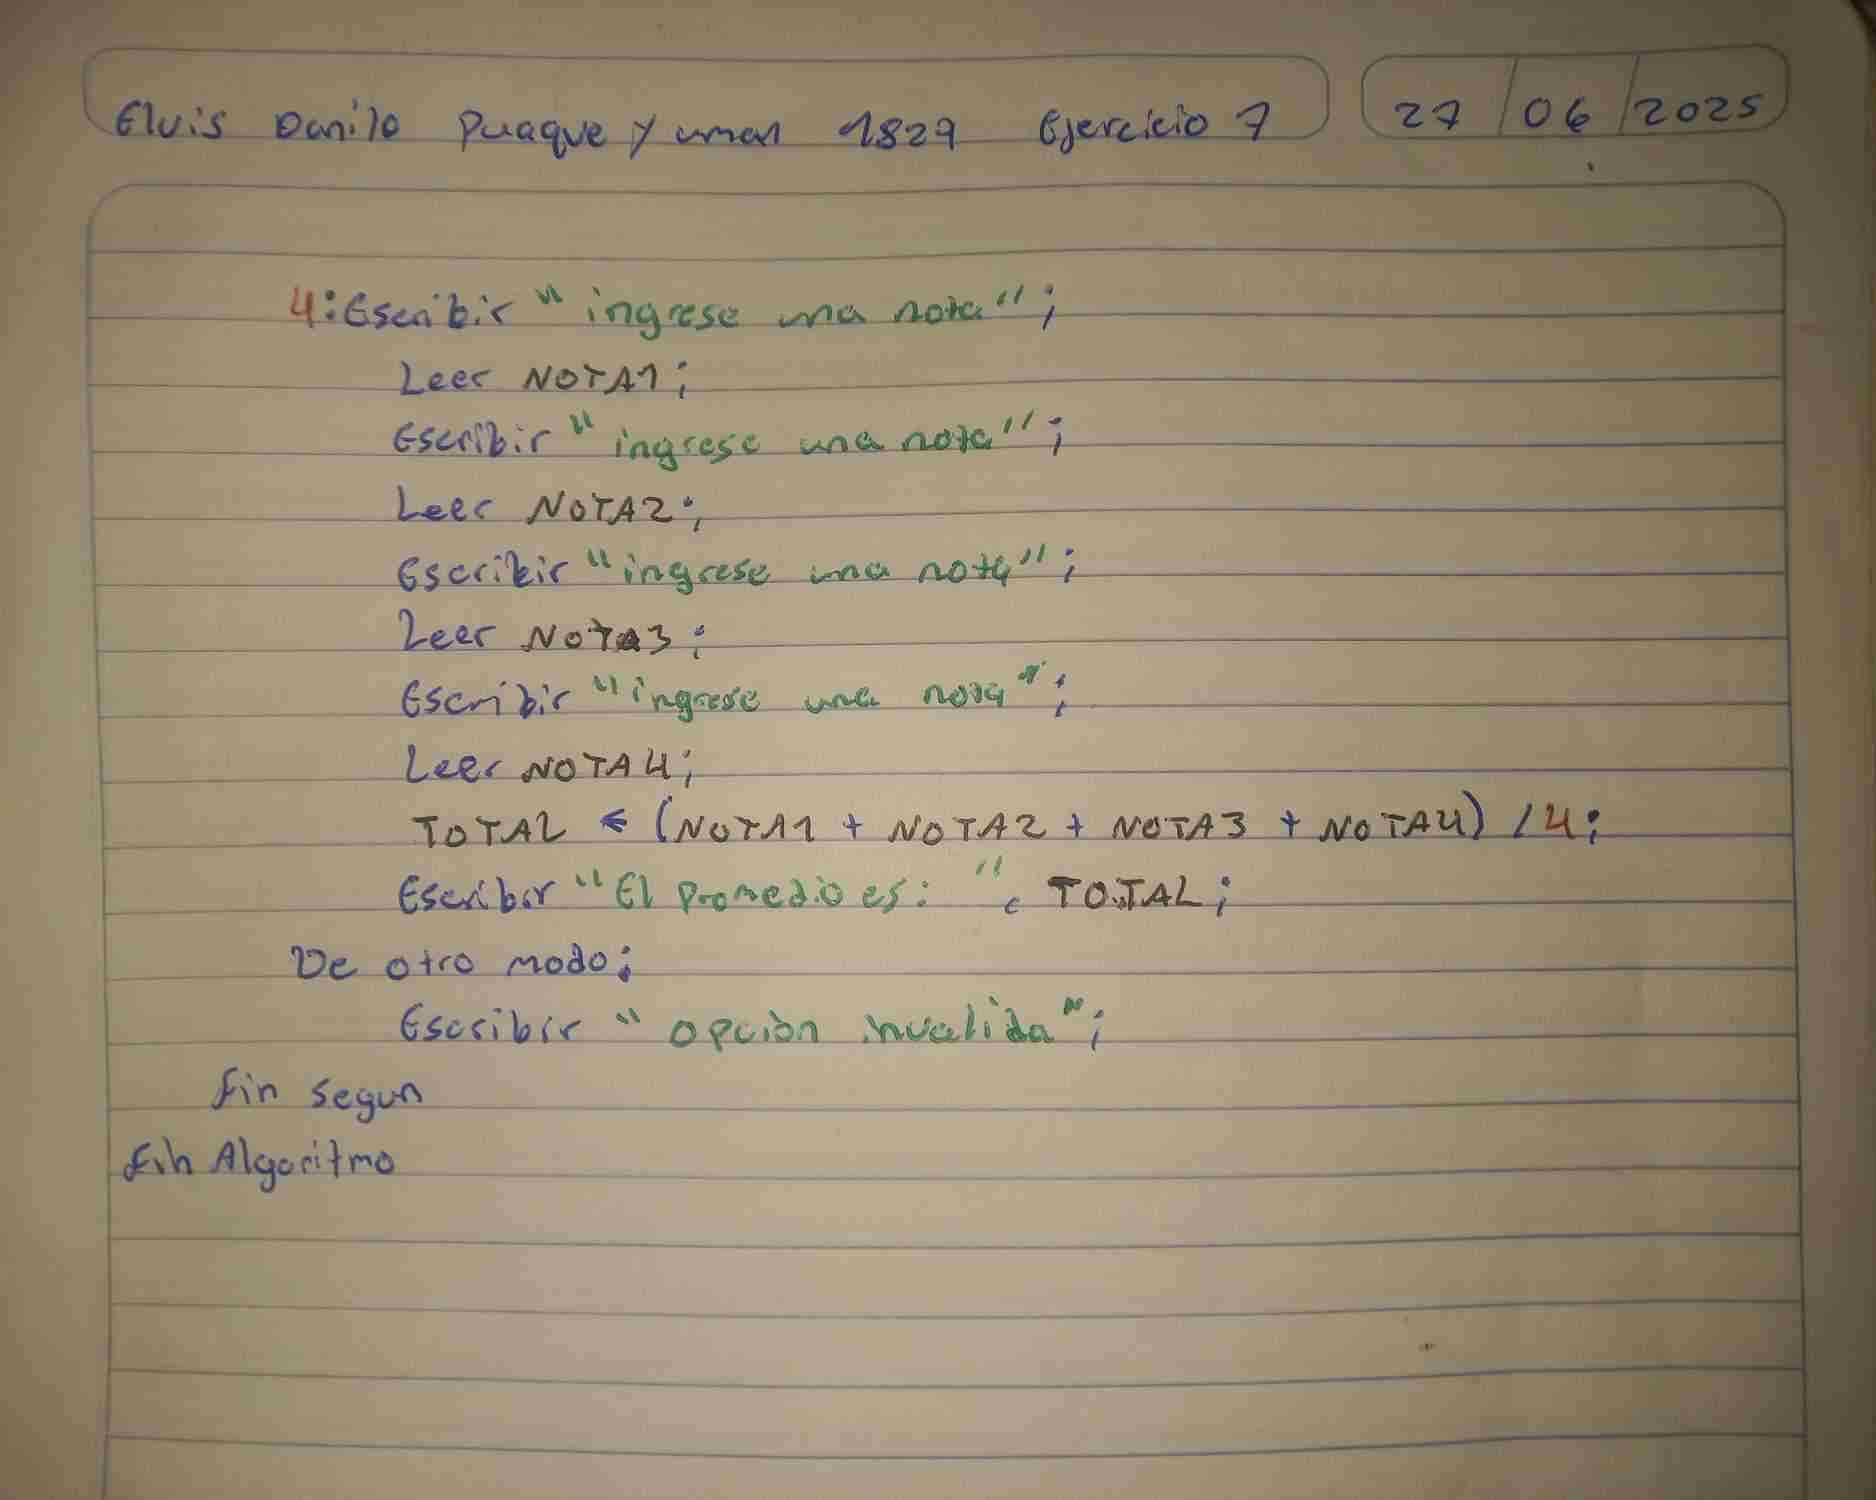 Elvis Danilo Puaque Yuman 1829 Ejercicio 7 27/06/2025
4: Escribir "ingrese una nota";
Leer NOTA1;
Escribir "ingrese una nota";
Leer NOTA2;
Escribir "ingrese una nota";
Leer NOTA3;
Escribir "ingrese una nota";
Leer NOTA4;
TOTAL ← (NOTA1 + NOTA2 + NOTA3 + NOTA4) /4;
Escribir "El Promedio es: ", TOTAL;
De otro modo:
Escribir "opción invalida";
Fin segun
Fin Algoritmo